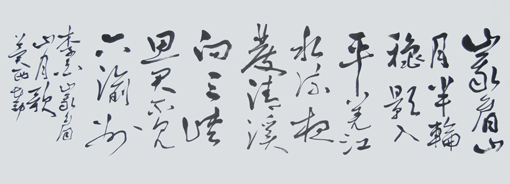 峩眉山
月半輪
秋影入
平羌江
水流夜
發清溪
向三峡
思君不見
下渝州
李白峩眉
山月歌